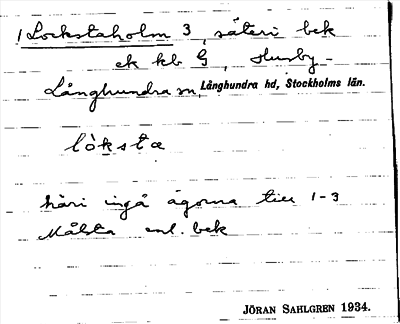 1 Lockstaholm 3, säteri bek
ek kb G, Husby-
Långhundra sn, Långhundra hd, Stockholms län.
lò̀ksta
häri ingå ägorna till 1-3
Målsta enl. bek
JÖRAN SAHLGREN 1934.